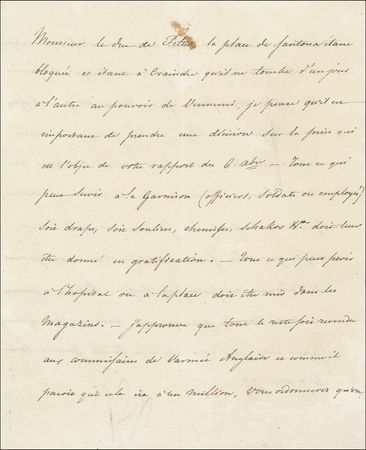 Monsieur le duc de Feltre, la place de Santona étant
bloquée et étant à craindre qu'il ne tombe d'un jour
à l'autre au pouvoir de l'ennemi, je pense qu'il est
important de prendre une décision sur la prise qui
est l'objet de votre rapport du 6. abre — Tout ce qui
peut servir à la Garnison (officiers, soldats ou employés)
soit draps, soit souliers, chemises, schakos &a doit leur
être donné en gratification. — Tout ce qui peut servir
à l'hopital ou à la place doit être mis dans les
Magazins. — j'approuve que tout le reste soit revendu
aux commissaires de l'armée Anglaise et comme il
paroit que cela ira à un million, vous ordonnerez qu'on